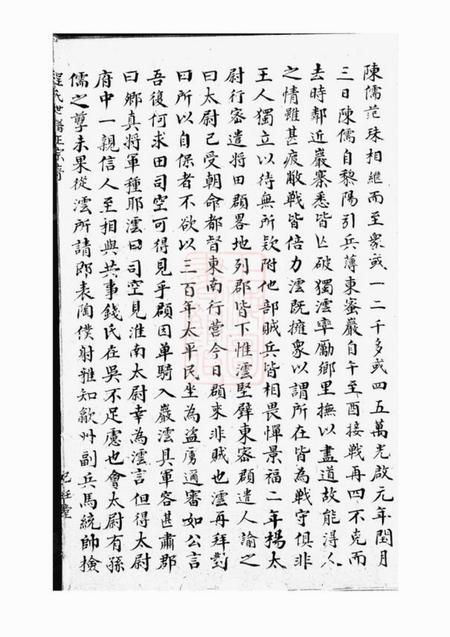 陳儒范珠相継而至衆或一二千多或四五萬光啟元年閏月
三日陳儒自黎陽引兵薄東蜜巖自午至酉接戰再四不克而
去時鄰近巖寨悉皆亡破獨澐率勵鄉里撫以盡道故能得人
之情雖甚疲敝戰皆倍力澐既擁衆以謂所在皆為戰守俱非
王人獨立以待無所款附他部賊兵皆相畏憚景福二年楊太
尉行密遣将田頵畧地列郡皆下惟澐堅鐸東密頵遣人諭之
曰太尉已受朝命都督東南行營今日頵来非賊也澐再拜對
曰所以自保者不欲以三百年太平民坐為盗虜適審如公言
吾後何求田司空可得見乎頵因单騎入巖澐具軍容甚肅郡
曰鄉真将軍種耶澐曰司空見淮南太尉幸為澐言但得太尉
府中一親信人至相與共事錢氏在吳不足慮也會太尉有孫
儒之孽未果從澐所請即表陶僕射雅知歙州副兵馬統帥檢
程氏世譜正宗